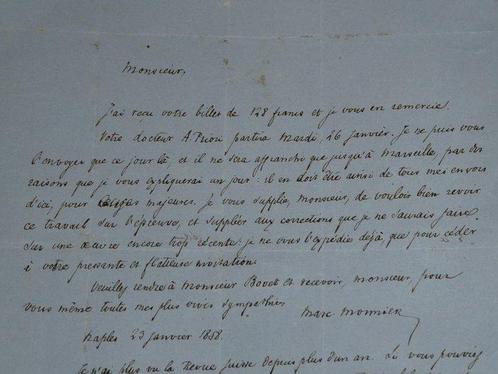 Monsieur,
J'ai reçu votre billet de 128 francs et je vous en remercie.
Votre docteur A Priori partira Mardi, 26 janvier. Je ne puis vous
l'envoyer que ce jour là, et il ne sera affranchi que jusqu'à Marseille, par des
raisons que je vous expliquerai un jour: il en doit être ainsi de tous mes envois
d'ici, pour raisons majeures. Je vous supplie, monsieur, de vouloir bien revoir
ce travail sur l'épreuve, et suppléer aux corrections que je ne saurais faire
sur une œuvre encore trop récente: je ne vous l'expédie déjà que pour céder
à votre pressante et flatteuse invitation.
Veuillez rendre à Monsieur Bovet et recevoir, monsieur, pour
vous même toutes mes plus vives sympathies
Marc Monnier
Naples 23 janvier 1858.
Je n'ai plus vu la Revue Suisse depuis plus d'un an. Si vous pouviez